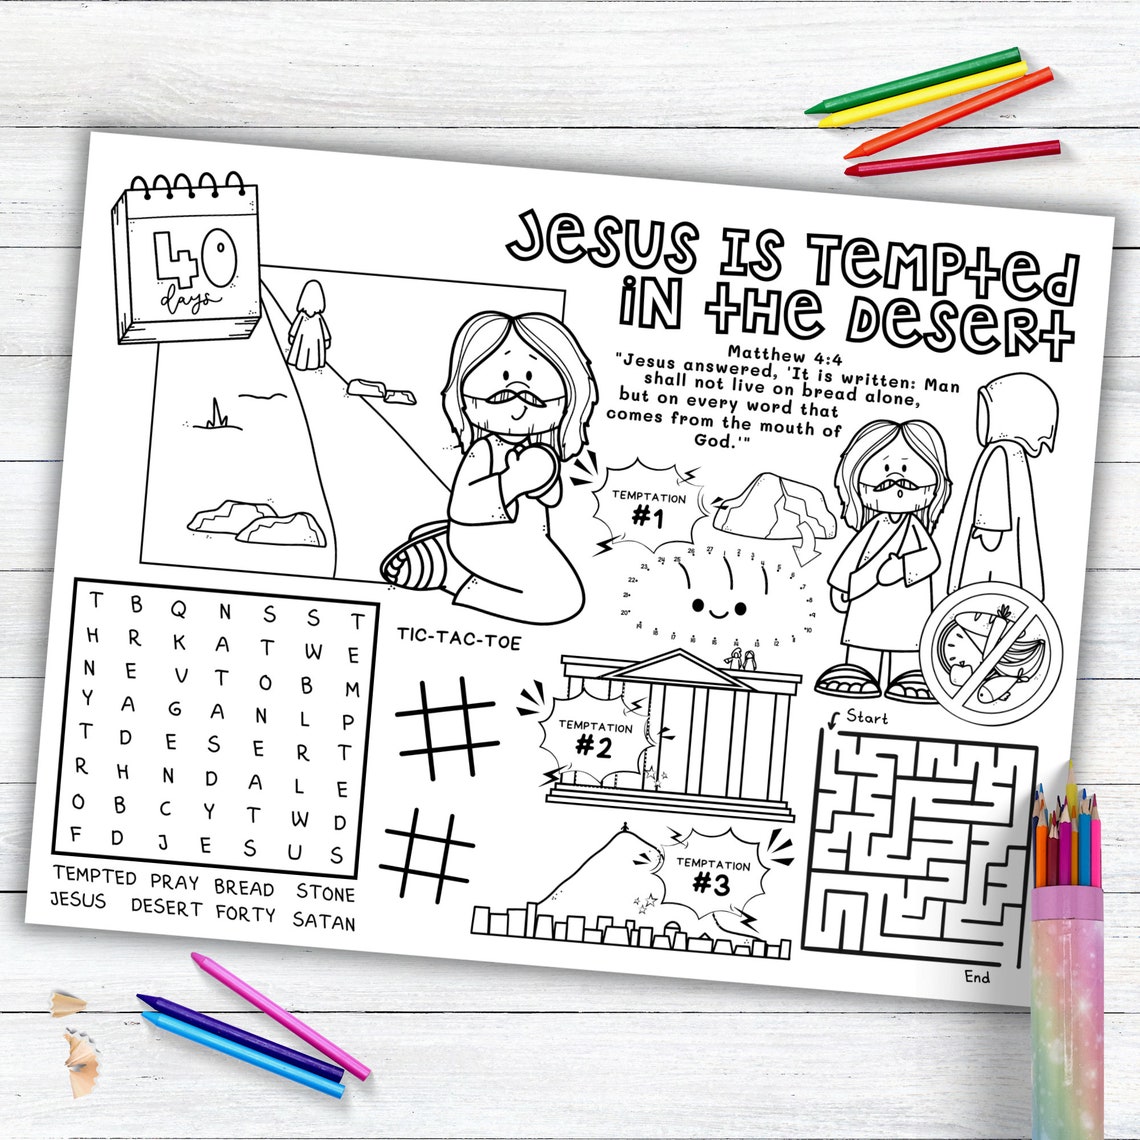 40
days
JESUS IS TEMPTED
IN THE DESERT
Matthew 4:4
"Jesus answered, 'It is written: Man
shall not live on bread alone,
but on every word that
comes from the mouth of
God.'"
TEMPTATION
#1
T B Q N S S T
H R K A T W E
N E V T O B M
Y A G A N L P
T D E S E R T
R H N D A L E
O B C Y T W D
F D J E S U S
TEMPTED PRAY BREAD STONE
JESUS DESERT FORTY SATAN
TIC-TAC-TOE
TEMPTATION
#2
TEMPTATION
#3
Start
End